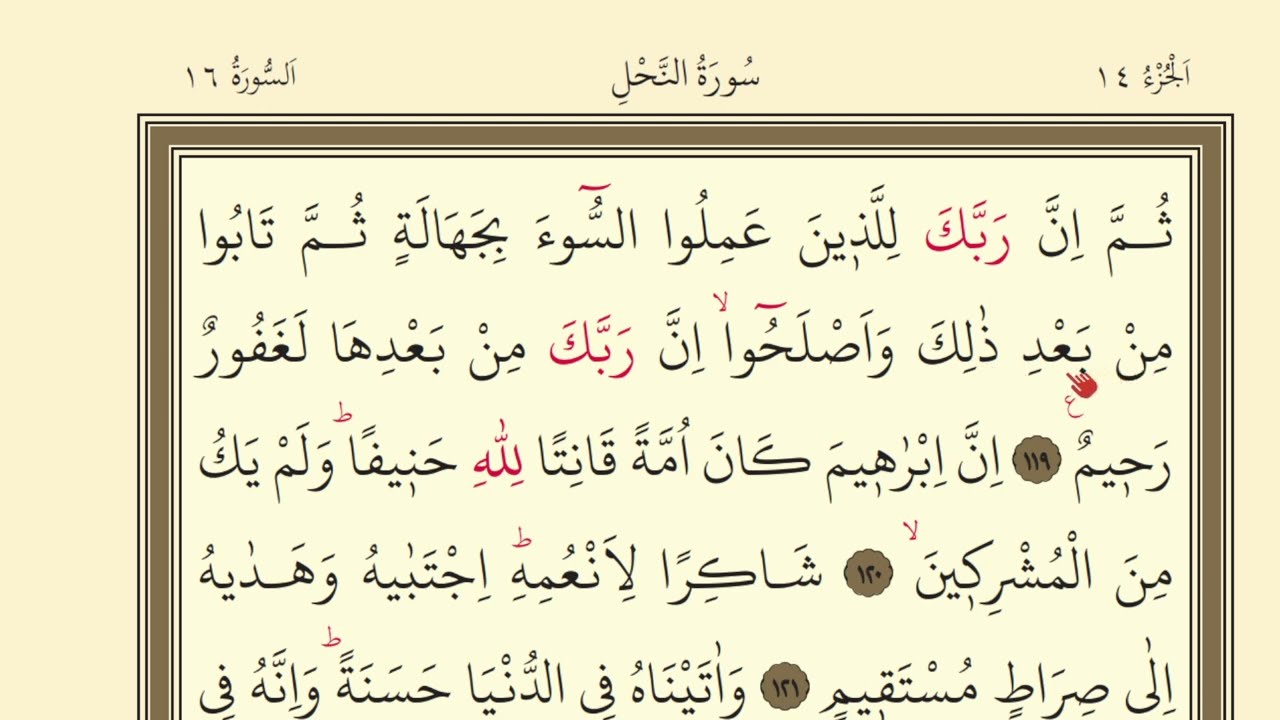 اَلْجُزْءُ ١٤ سُورَةُ النَّحْلِ اَلسُّورَةُ ١٦
ثُمَّ اِنَّ رَبَّكَ لِلَّذ۪ينَ عَمِلُوا السُّٓوءَ بِجَهَالَةٍ ثُمَّ تَابُوا
مِنْ بَعْدِ ذٰلِكَ وَاَصْلَحُٓواۙ اِنَّ رَبَّكَ مِنْ بَعْدِهَا لَغَفُورٌ
رَح۪يمٌ ع ١١٩ اِنَّ اِبْرٰه۪يمَ كَانَ اُمَّةً قَانِتًا لِلّٰهِ حَن۪يفًاۜ وَلَمْ يَكُ
مِنَ الْمُشْرِك۪ينَۙ ١٢٠ شَاكِرًا لِاَنْعُمِهِۜ اِجْتَبٰيهُ وَهَدٰيهُ
اِلٰى صِرَاطٍ مُسْتَق۪يمٍ ١٢١ وَاٰتَيْنَاهُ فِي الدُّنْيَا حَسَنَةًۜ وَاِنَّهُ فِي